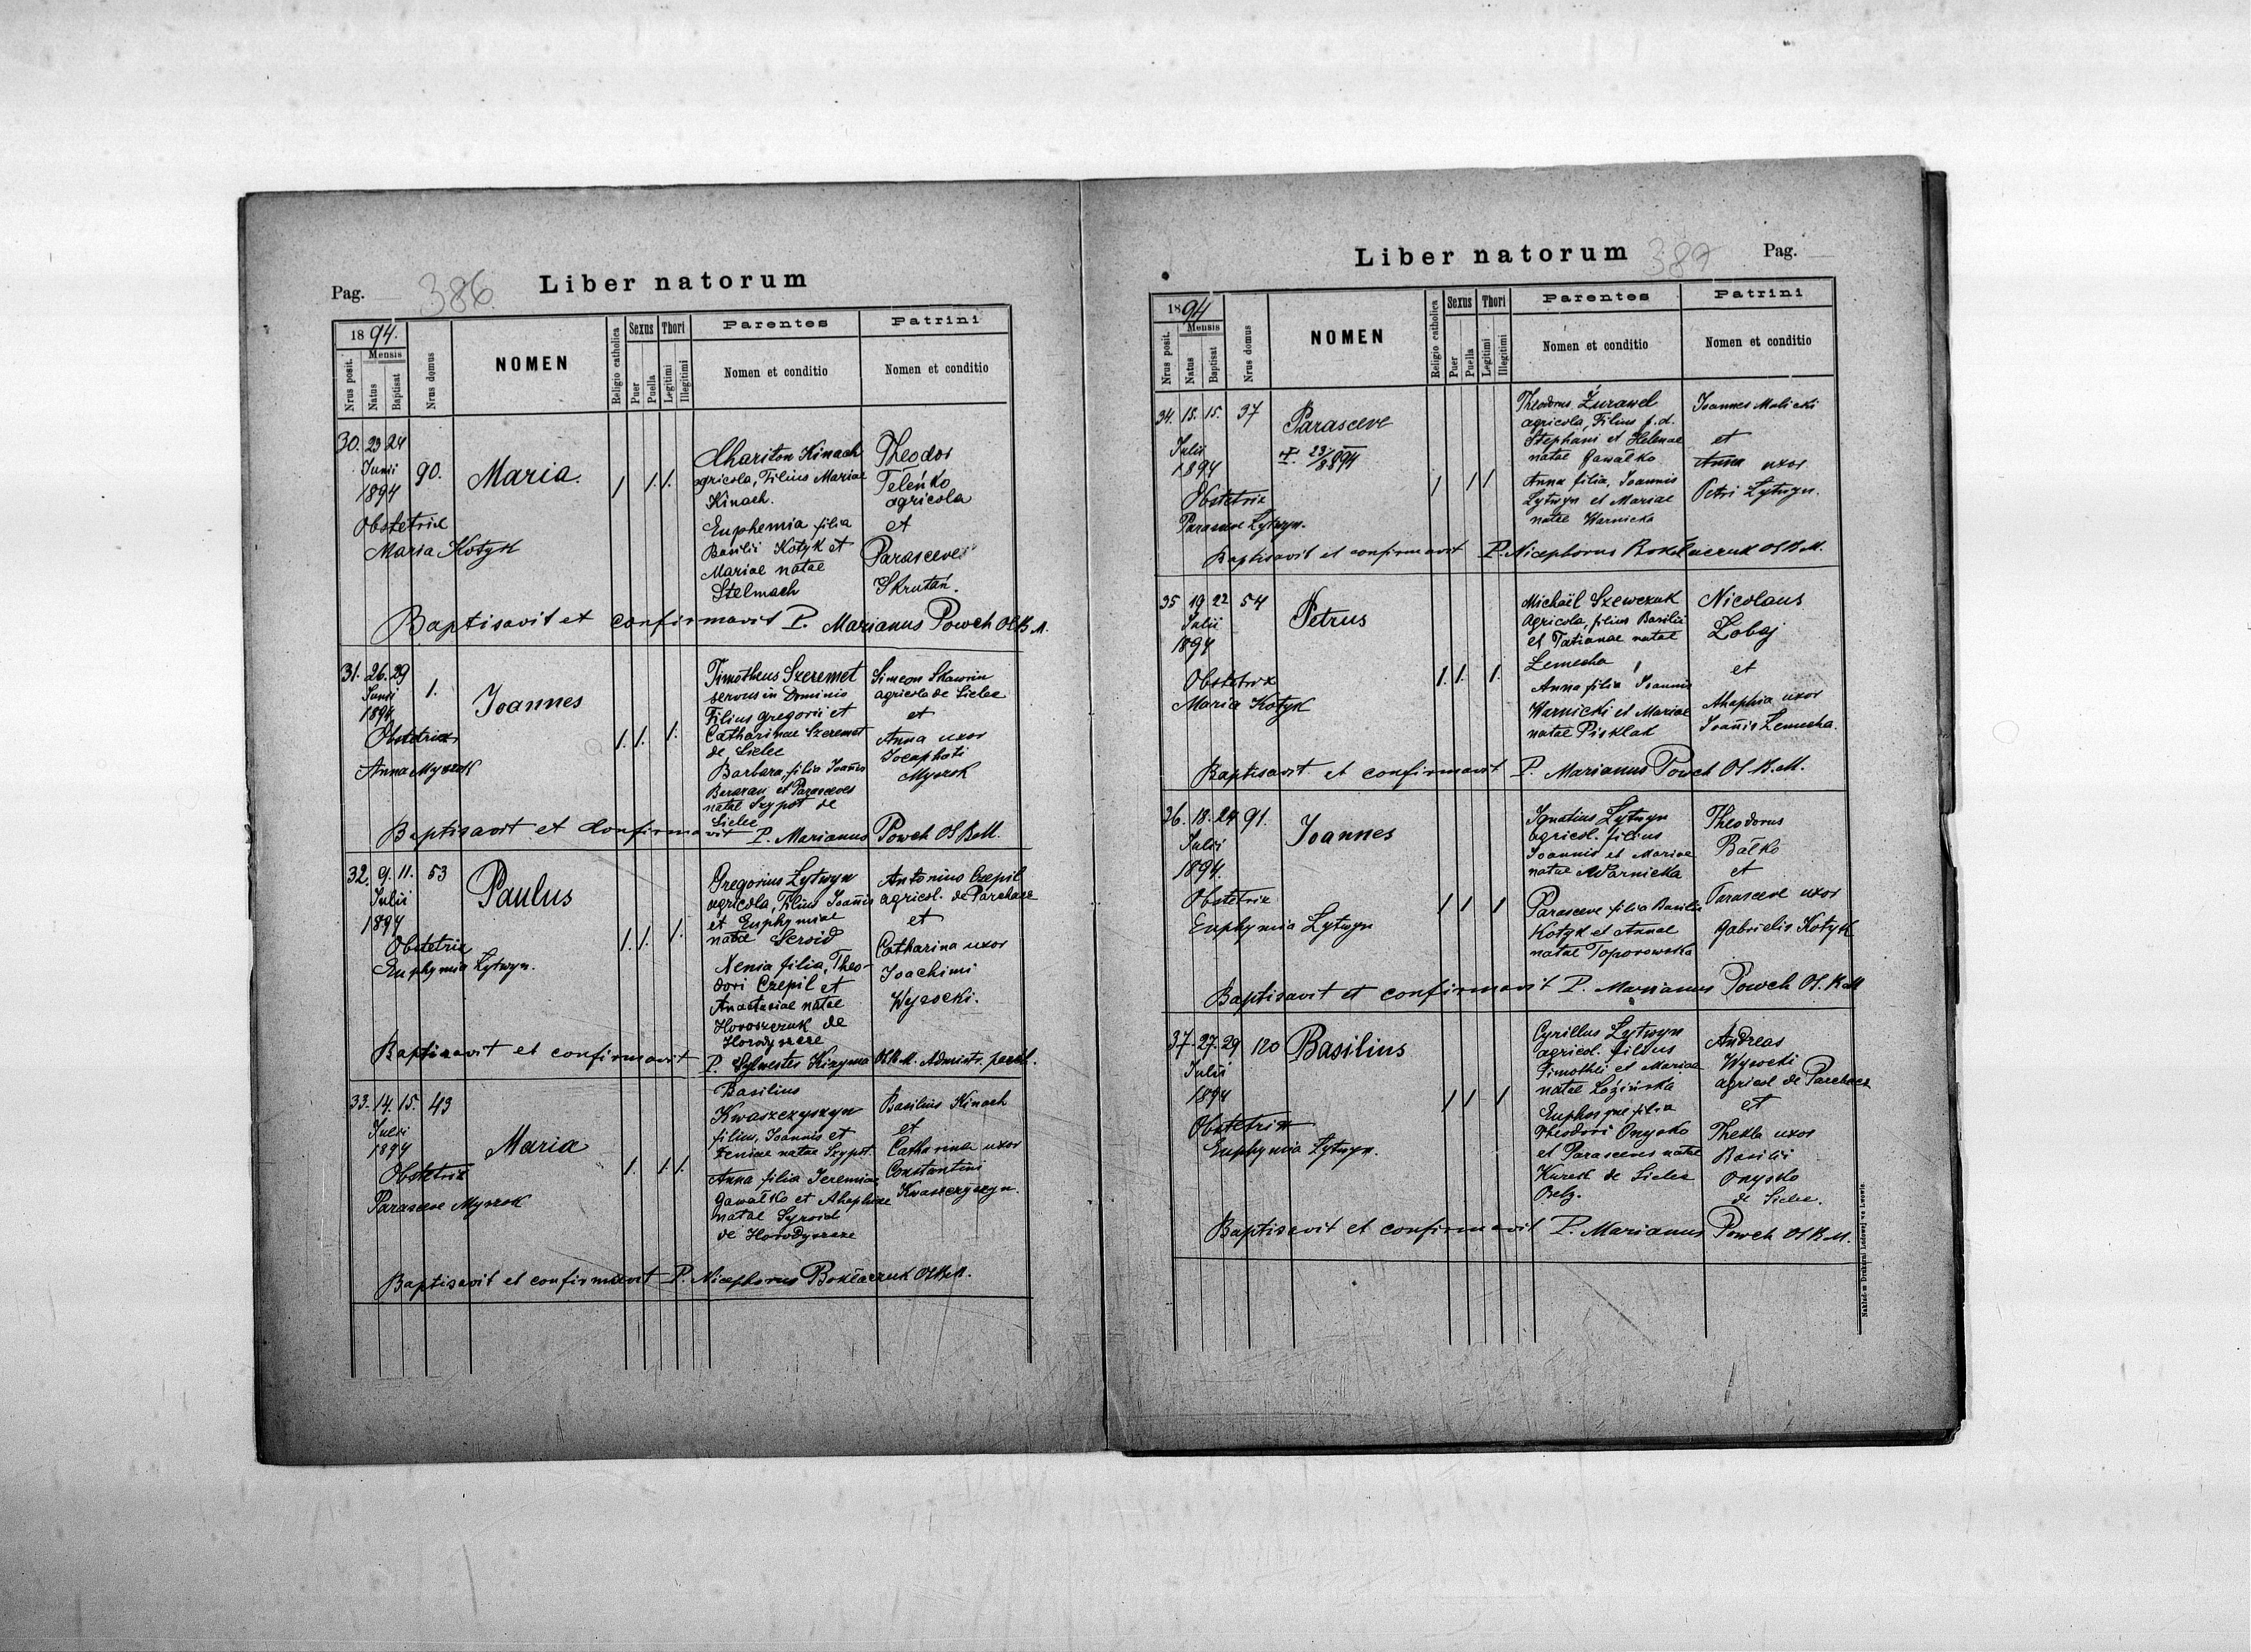 Pag. 386 Liber natorum
1894.
Nrus posit.
Mensis
Natus
Baptisat
Nrus domus
NOMEN
Religio catholica
Sexus
Puer
Puella
Thori
Legitimi
Illegitimi
Parentes
Nomen et conditio
Patrini
Nomen et conditio
30. 23 24
Junii
1894
90.
Maria.
1 1. 1.
Obstetrix
Maria Kotyk
Chariton Kinach
agricola, Filius Mariae
Kinach.
Euphemia filia
Basilii Kotyk et
Mariae natae
Stelmach
Theodor
Teleńko
agricola
et
Parasceve
Skrutań.
Baptisavit et confirmavit P. Marianus Powch OSBM.
31. 26. 29
Junii
1894
1.
Joannes
1. 1. 1.
Obstetrix
Anna Myszok
Timotheus Szeremet
servus in Dominio
Filius gregorii et
Catharinae Szeremet
de Sielec
Barbara, filia Joannis
et Parasceves
natae Szypot de
Sielec
Simeon
agricola de Sielec
et
Anna uxor
Baptisavit et confirmavit P. Marianus Powch OSBM.
32. 9. 11. 53
Julii
1894
Paulus
1. 1. 1.
Obstetrix
Euphymia Lytwyn.
Gregorius Lytwyn
agricola, Filius Joannis
et Euphymiae
natae Seroid
Xenia filia, Theo-
dori Czepil et
Anastasiae natae
Horoszczuk de
Horodyszcze
Antonius Czepil
agricol. de Parchacz
et
Catharina uxor
Joachimi
Wysocki.
Baptisavit et confirmavit P. Sylvester Kizyma OSBM. Administr. paroch.
33. 14. 15. 43
Julii
1894
Maria
1. 1. 1.
Obstetrix
Parasceve Myszok
Basilius
Kwaszczyszyn
filius, Joannis et
Xeniae natae Szypot.
Anna filia Jeremiae
Gawałko et Ahaphiae
natae Syroid
de Horodyszcze
Basilius Kinach
et
Catharina uxor
Constantini
Kwaszczyszyn.
Baptisavit et confirmavit P. Nicephorus Bokłaczuk OSBM.
Liber natorum 387 Pag.
1894
Nrus posit.
Mensis
Natus
Baptisat
Nrus domus
NOMEN
Religio catholica
Sexus
Puer
Puella
Thori
Legitimi
Illegitimi
Parentes
Nomen et conditio
Patrini
Nomen et conditio
34. 15. 15. 37
Julii
1894
Parasceve
1 1 1
Obstetrix
Parasceve Lytwyn.
Theodorus Żurawel
agricola, Filius p.d.
Stephani et Helenae
natae Gawałko
Anna filia, Joannis
Lytwyn et Mariae
natae Warnicka
Joannes Malicki
et
Anna uxor
Petri Lytwyn.
Baptisavit et confirmavit P. Nicephorus Bokłaczuk OSBM.
35 19 22 54
Julii
1894
Petrus
1. 1. 1.
Obstetrix
Maria Kotyk
Michaël Szewczuk
Agricola, filius Basilii
et Tatianae natae
Zemecha
Anna filia Joannis
Warnicki et Mariae
natae Pisklak
Nicolaus
Zobaj
et
Ahaphia uxor
Joannis Zemecha.
Baptisavit et confirmavit P. Marianus Powch OS.B.M.
36. 18. 24 91.
Julii
1894.
Joannes
1 1 1
Obstetrix
Euphymia Lytwyn
Ignatius Lytwyn
agricol. filius
Joannis et Mariae
natae Warnicka
Parasceve filia Basilii
Kotyk et Annae
natae Toporowska
Theodorus
Bałko
et
Parasceve uxor
Gabrielis Kotyk
Baptisavit et confirmavit P. Marianus Powch OS.BM
37. 27. 29 120
Julii
1894
Basilius
1 1 1
Obstetrix
Euphymia Lytwyn.
Cyrillus Lytwyn
agricol. filius
Timothei et Mariae
natae Łozińska
filia
Theodori Onysko
et Parasceves natae
Kurek de Sielec
Belz.
Andreas
Wysocki
agricol de Parchacz
et
Thekla uxor
Basilii
Onysko
de Sielec.
Baptisavit et confirmavit P. Marianus Powch OSBM.